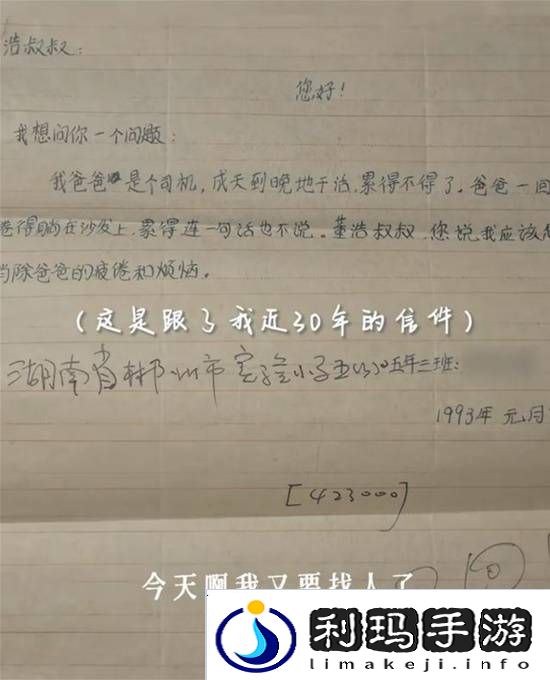 浩叔叔：
您好！
我想问你一个问题：
我爸爸是个司机，成天到晚地干活，累得不得了。爸爸一回
倦得躺在沙发上，累得连一句话也不说。董浩叔叔，您说我应该怎
当除爸爸的疲倦和烦恼。
（这是跟了我近30年的信件）
湖南省郴州市实验小学 五年三班：
1993年 元月
[423000]
回
今天啊我又要找人了
利玛手游
limakeji.info